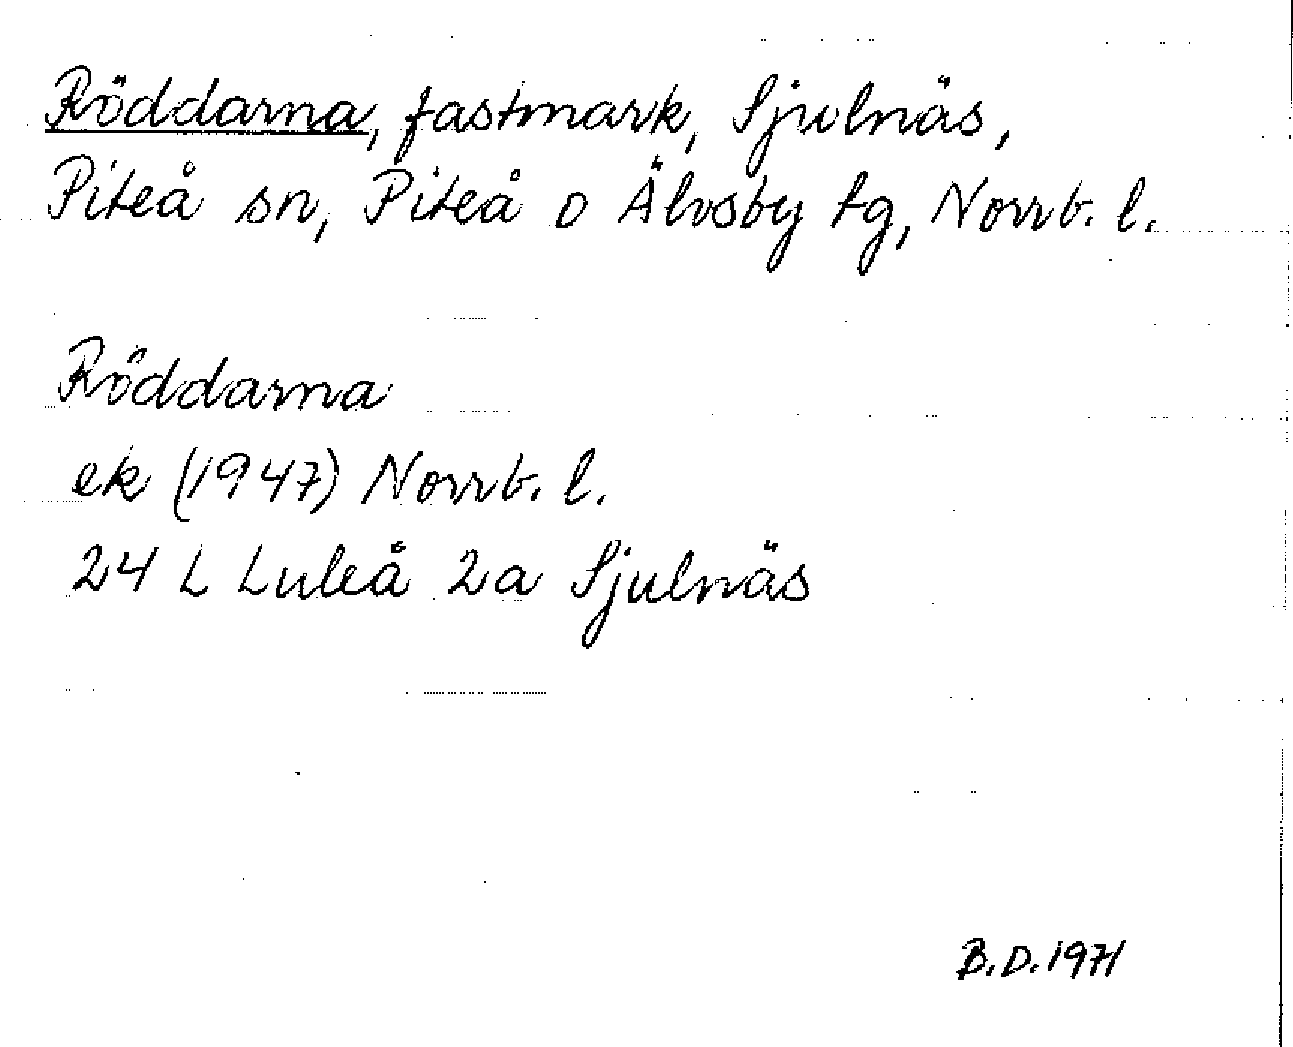 Röddarna, fastmark, Sjulnäs,
Piteå sn, Piteå o Älvsby tg, Norrb. l.
Röddarna
ek (1947) Norrb. l.
24 L Luleå 2a Sjulnäs
B.D. 1971